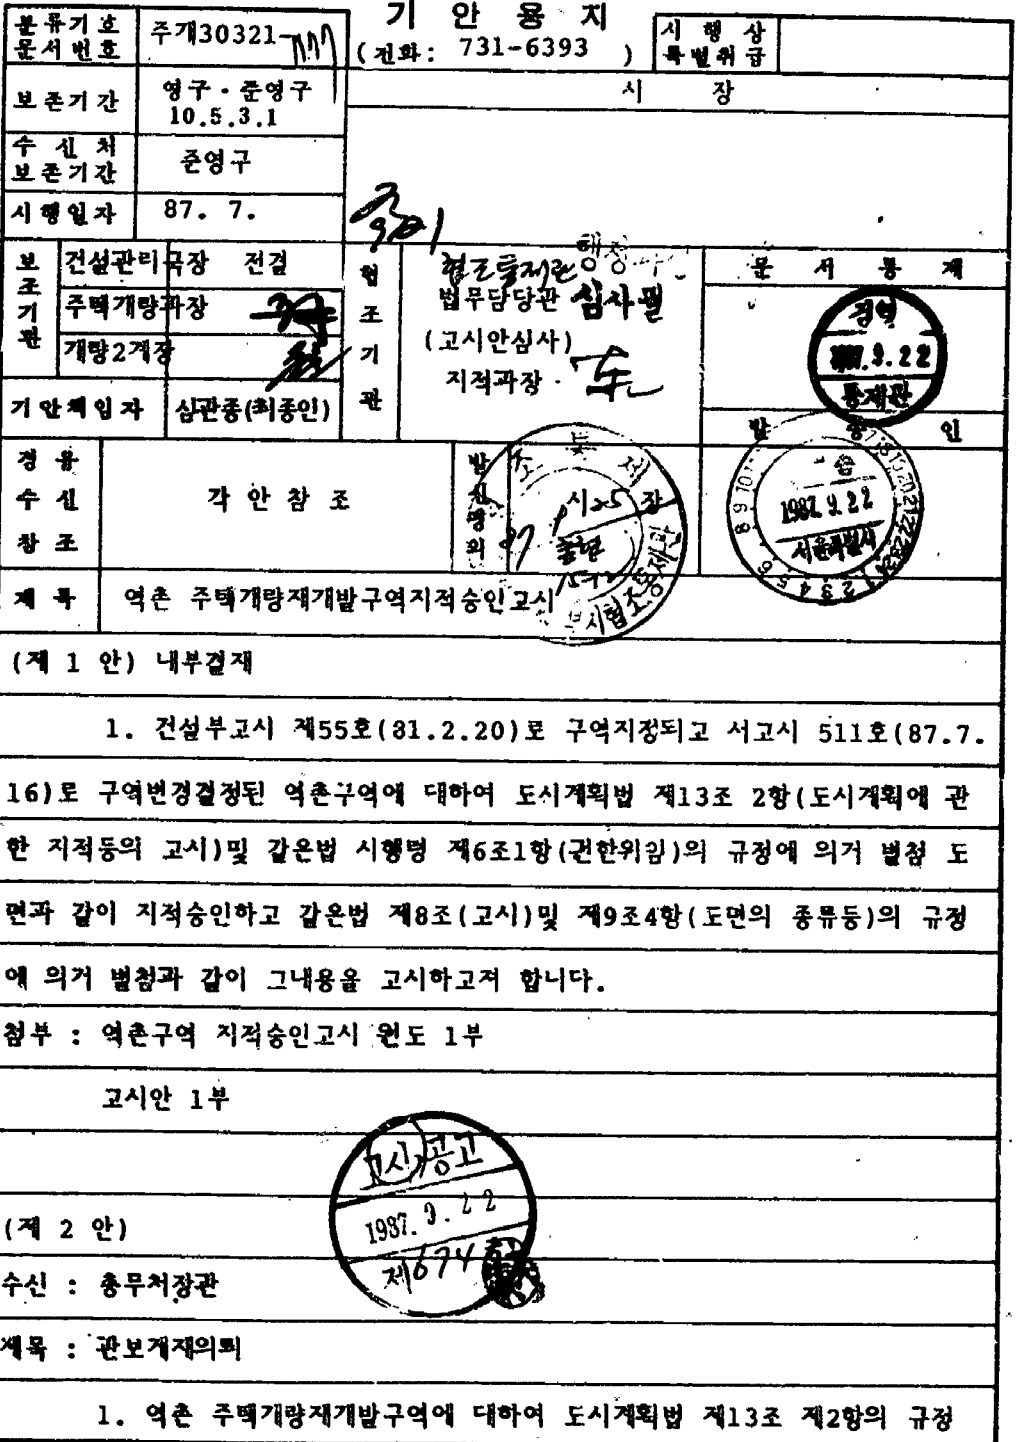 기 안 용 지
분류기호 문서번호 주개30321-
(전화: 731-6393 )
시 행 상 특별취급
보존기간 영구·준영구 10.5.3.1
시 장
수 신 처 보존기간 준영구
시행일자 87. 7.
보조기관
건설관리국장 전결
주택개량과장
개량2계장
기안책임자 심관종(최종인)
협조기관
법무담당관 심사필
(고시안심사)
지적과장
문 서 통 제
1987.9.22
통제관
발 송 인
1987.9.22
서울특별시
경 유
수 신 각 안 참 조
참 조
발신명의 시 장
제 목 역촌 주택개량재개발구역지적승인고시
(제 1 안) 내부결재
1. 건설부고시 제55호(81.2.20)로 구역지정되고 서고시 511호(87.7.
16)로 구역변경결정된 역촌구역에 대하여 도시계획법 제13조 2항(도시계획에 관
한 지적등의 고시)및 같은법 시행령 제6조1항(권한위임)의 규정에 의거 별첨 도
면과 같이 지적승인하고 같은법 제8조(고시)및 제9조4항(도면의 종류등)의 규정
에 의거 별첨과 같이 그내용을 고시하고저 합니다.
첨부 : 역촌구역 지적승인고시 원도 1부
고시안 1부
고시공고
1987. 9. 22
제674
(제 2 안)
수신 : 총무처장관
제목 : 관보게재의뢰
1. 역촌 주택개량재개발구역에 대하여 도시계획법 제13조 제2항의 규정